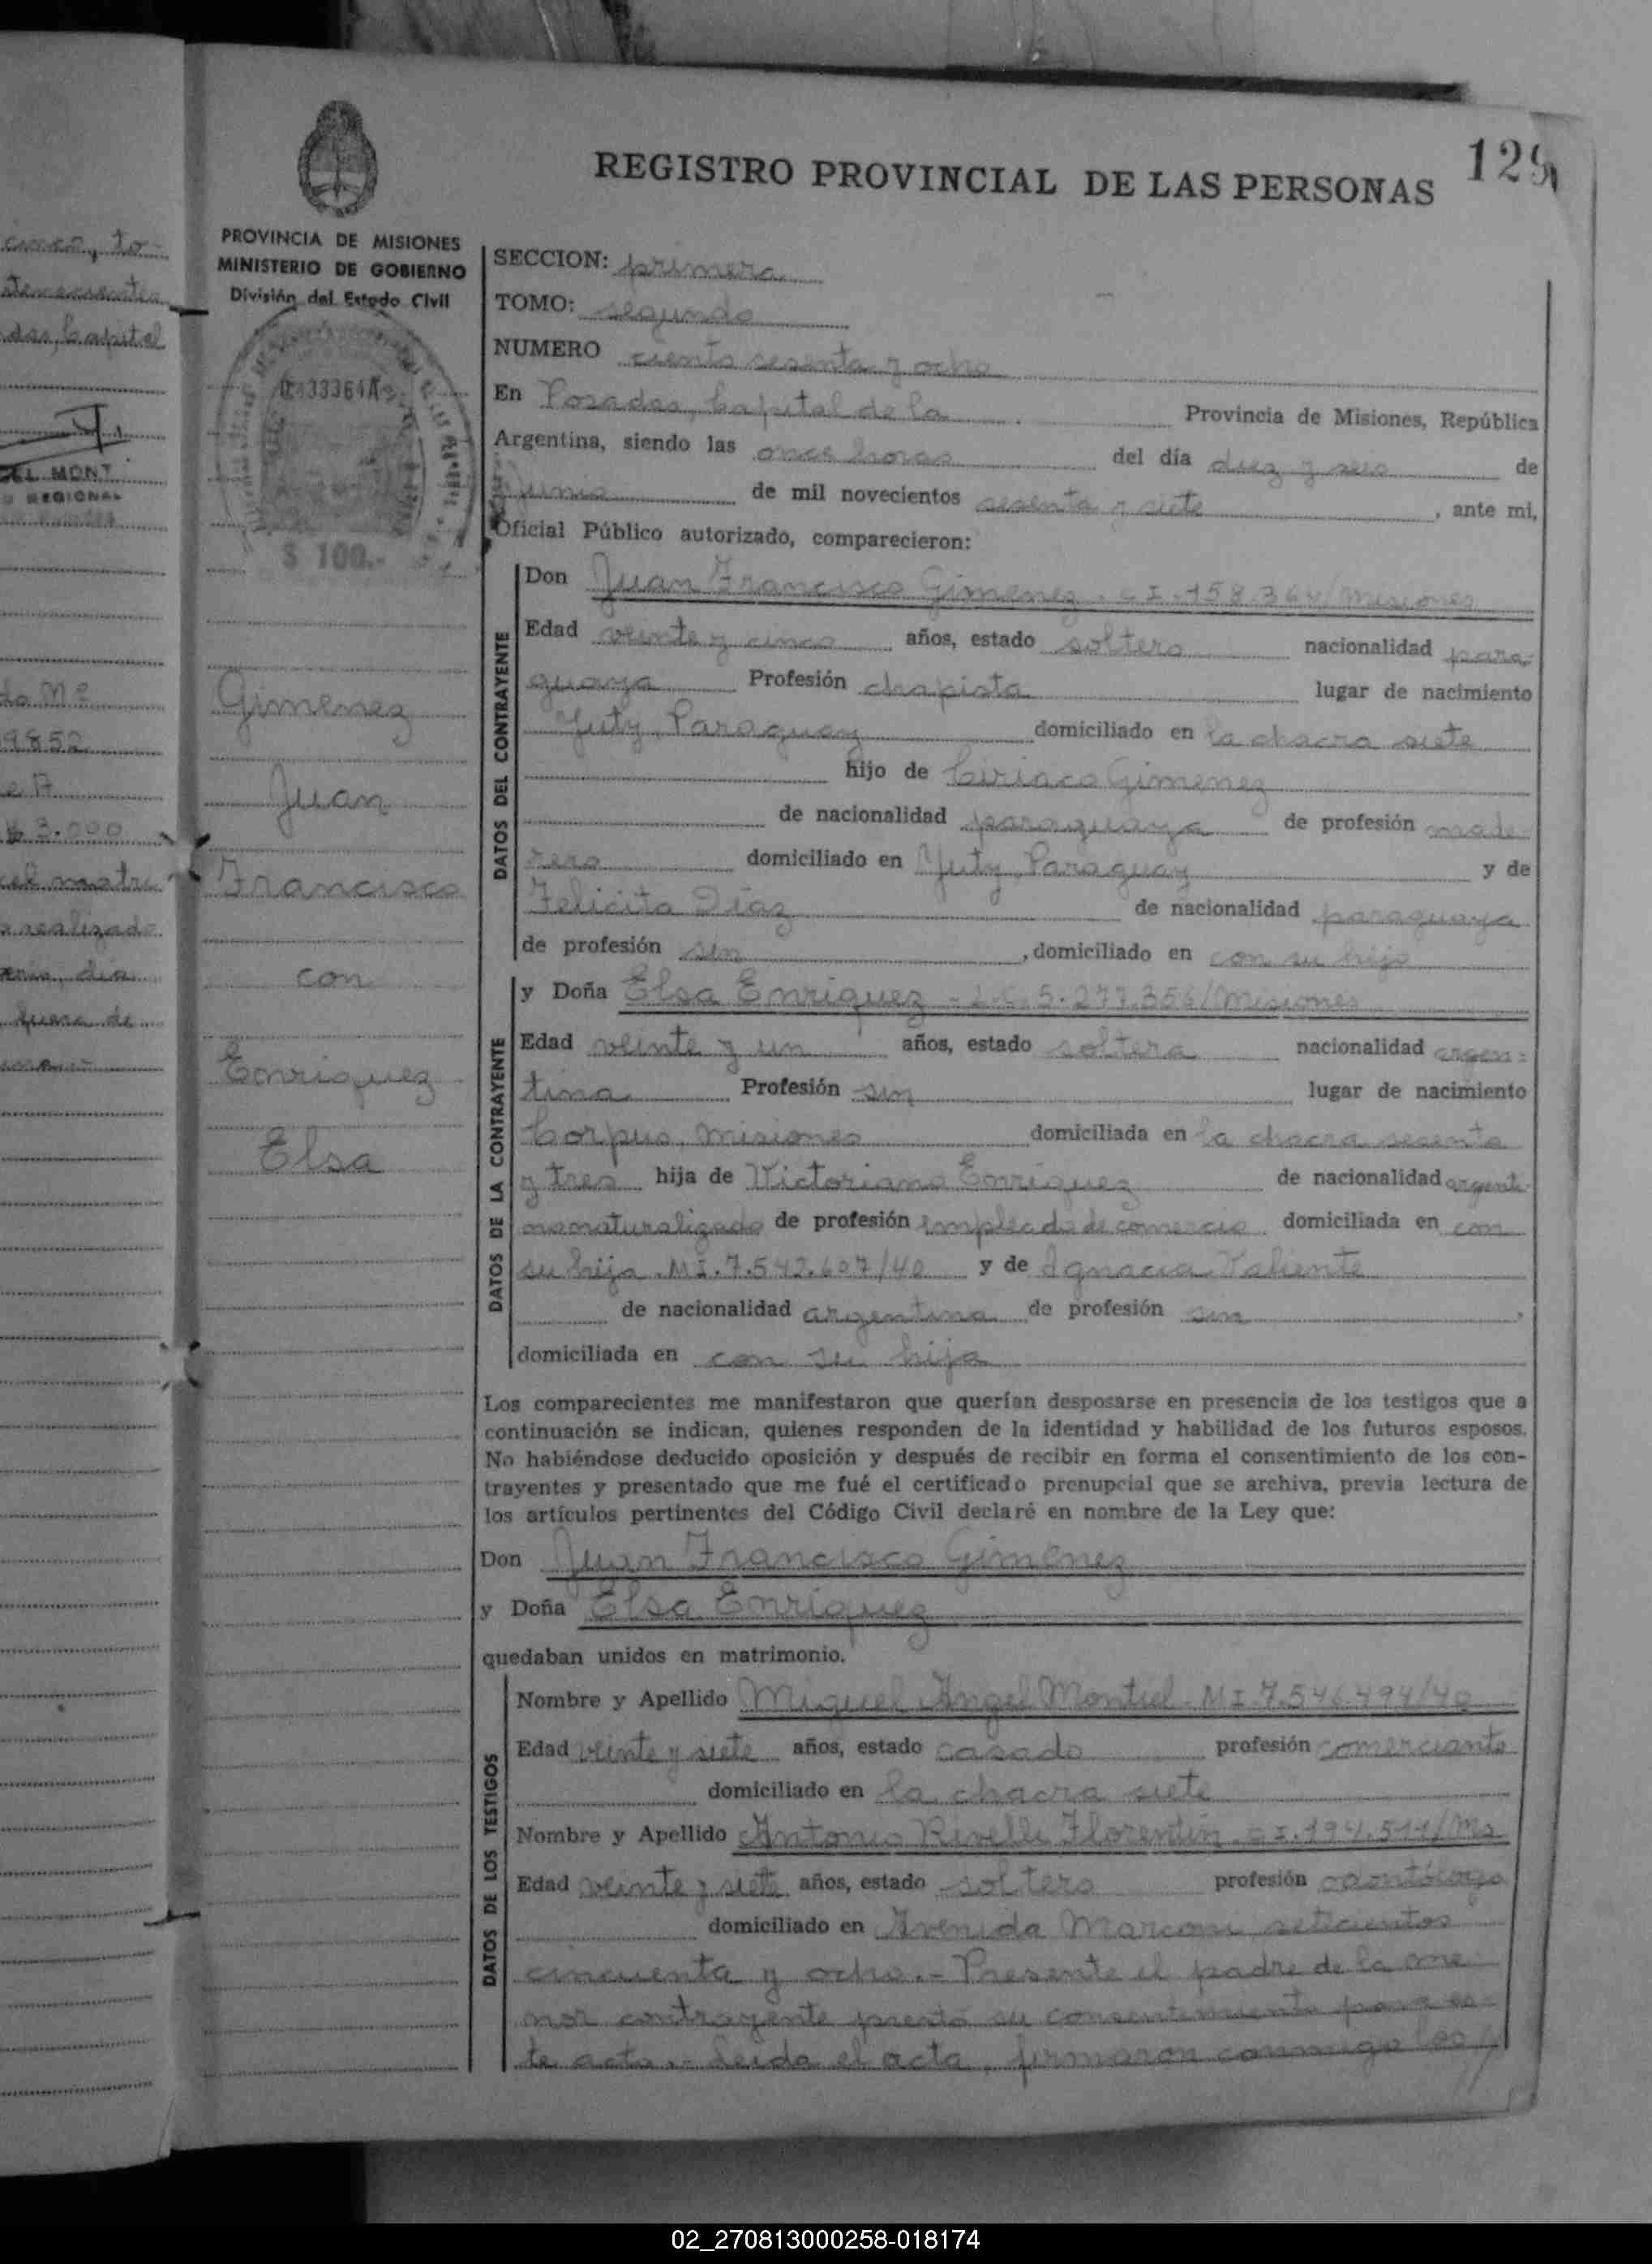 129
REGISTRO PROVINCIAL DE LAS PERSONAS
PROVINCIA DE MISIONES
MINISTERIO DE GOBIERNO
División del Estado Civil
$ 100.-
Gimenez
Juan
Francisco
con
Enriquez
Elsa
SECCION: primera
TOMO: segundo
NUMERO ciento sesenta y ocho
En Posadas, Capital de la Provincia de Misiones, República
Argentina, siendo las once horas del día diez y seis de
Junio de mil novecientos sesenta y siete, ante mi,
Oficial Público autorizado, comparecieron:
DATOS DEL CONTRAYENTE
Don Juan Francisco Gimenez. C I. 158.364/misiones
Edad veinte y cinco años, estado soltero nacionalidad para-
guaya Profesión chapista lugar de nacimiento
Yuty, Paraguay domiciliado en la chacra siete
hijo de Ciriaco Gimenez
de nacionalidad paraguaya de profesión made-
rero domiciliado en Yuty, Paraguay y de
Felicita Díaz de nacionalidad paraguaya
de profesión sin, domiciliado en con su hijo
DATOS DE LA CONTRAYENTE
y Doña Elsa Enriquez - L.C. 5.277.356/Misiones
Edad veinte y un años, estado soltera nacionalidad argen-
tina Profesión sin lugar de nacimiento
Corpus, misiones domiciliada en la chacra sesenta
y tres hija de Victoriano Enriquez de nacionalidad argenti-
no naturalizado de profesión empleado de comercio domiciliada en con
su hija. MI. 7.542.607/40 y de Ignacia Valiente
de nacionalidad argentina de profesión sin,
domiciliada en con su hija
Los comparecientes me manifestaron que querían desposarse en presencia de los testigos que a
continuación se indican, quienes responden de la identidad y habilidad de los futuros esposos.
No habiéndose deducido oposición y después de recibir en forma el consentimiento de los con-
trayentes y presentado que me fué el certificado prenupcial que se archiva, previa lectura de
los artículos pertinentes del Código Civil declaré en nombre de la Ley que:
Don Juan Francisco Gimenez
y Doña Elsa Enriquez
quedaban unidos en matrimonio.
DATOS DE LOS TESTIGOS
Nombre y Apellido Miguel Angel Montiel. MI 7.546.494/40
Edad veinte y siete años, estado casado profesión comerciante
domiciliado en la chacra siete
Nombre y Apellido Antonio Rivelli Florentín C I. 194.511/Ms
Edad veinte y siete años, estado soltero profesión odontólogo
domiciliado en Avenida Marconi setecientos
cincuenta y ocho.- Presente el padre de la me-
nor contrayente prestó su consentimiento para es-
te acto.- Leida el acta, firmaron conmigo los
02_270813000258-018174